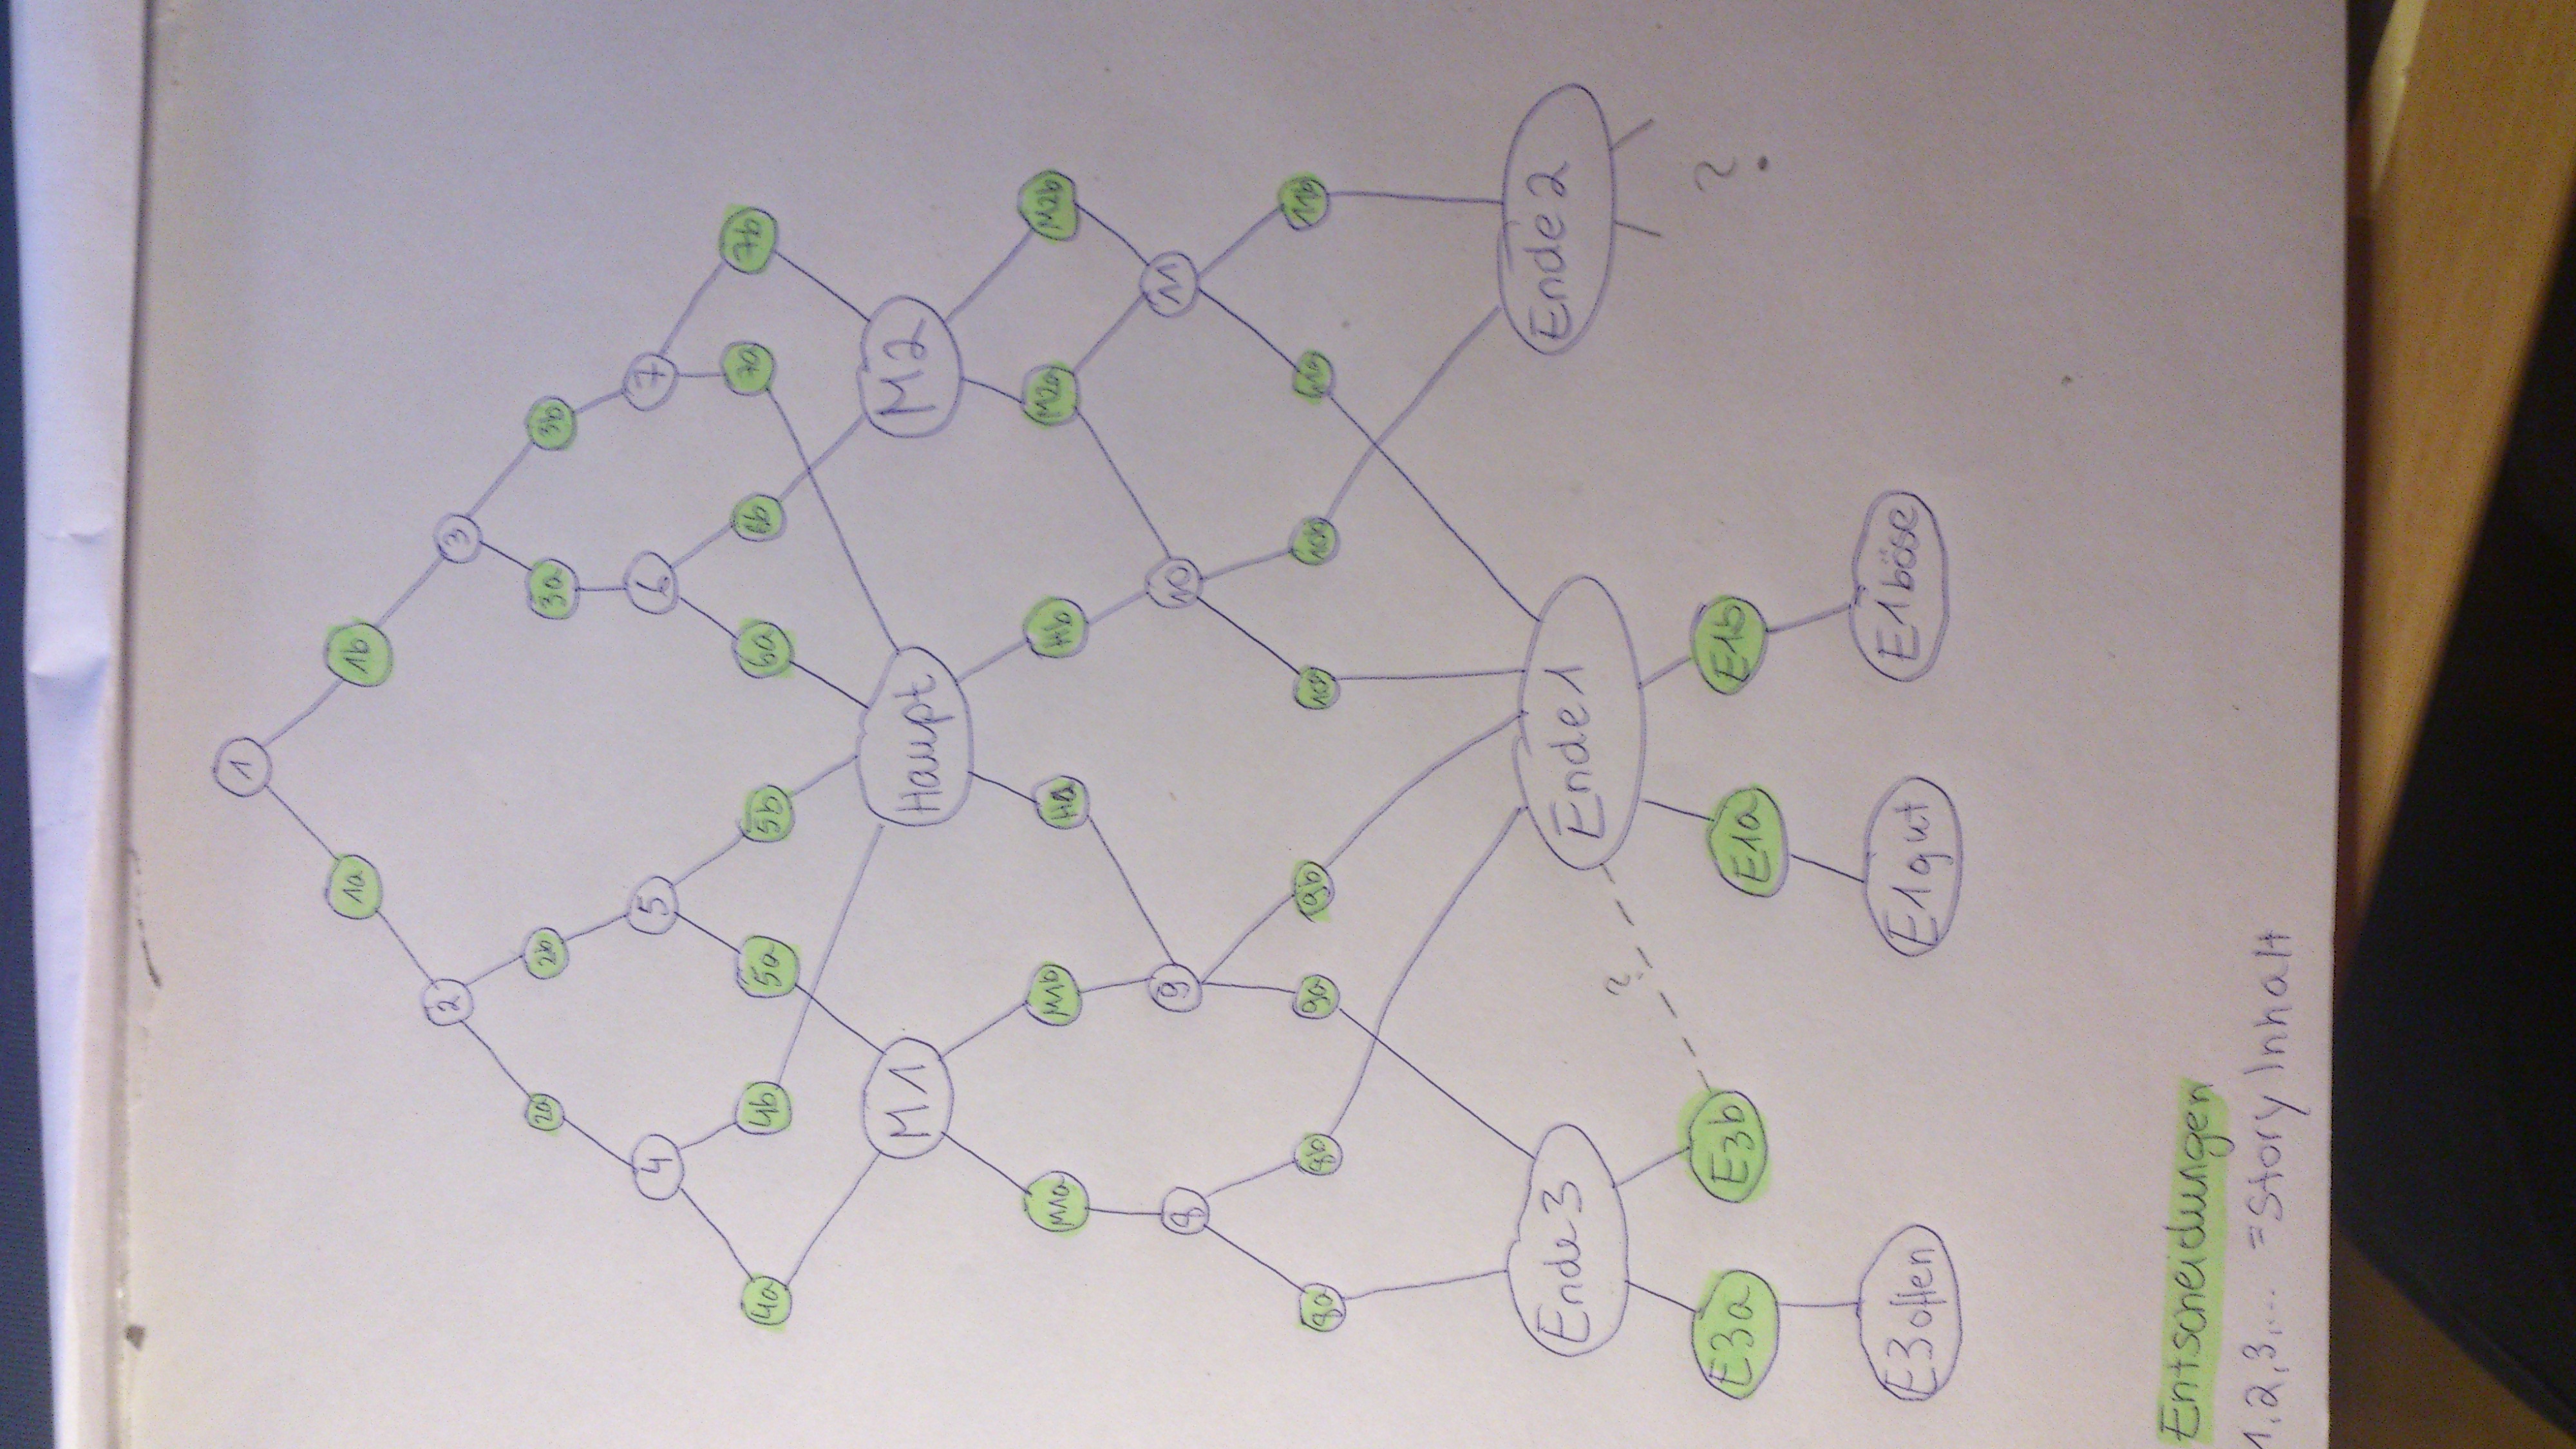 1
1a 1b
2 3
2a 2b 3a 3b
4 5 6 7
4a 4b 5a 5b 6a 6b 7a 7b
M1 Haupt M2
M1a M1b Ha Hb M2a M2b
8 9 10 11
8a 8b 9a 9b 10a 10b 11a 11b
Ende 3 Ende 1 Ende 2
?
E3a E3b E1a E1b ?
E3offen E1gut E1böse
Entscheidungen
1,2,3,... = Story Inhalt